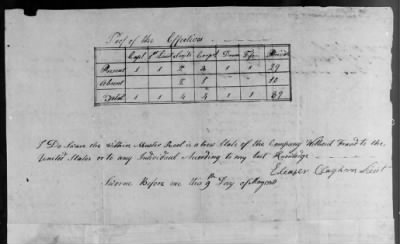 Proof of the Effectives
Capt 1st Lieut Serjts Corpl Drum Fife
Present 1 1 2 4 1 1 29
Absent 10
Total 1 1 4 4 1 1 39
I Do Swear the within Muster Roll is a true State of the Company without Fraud to the
United States or to any Individual According to my best Knowledge
Eleazer Claghorn Lieut
Sworne Before me this 9th Day of